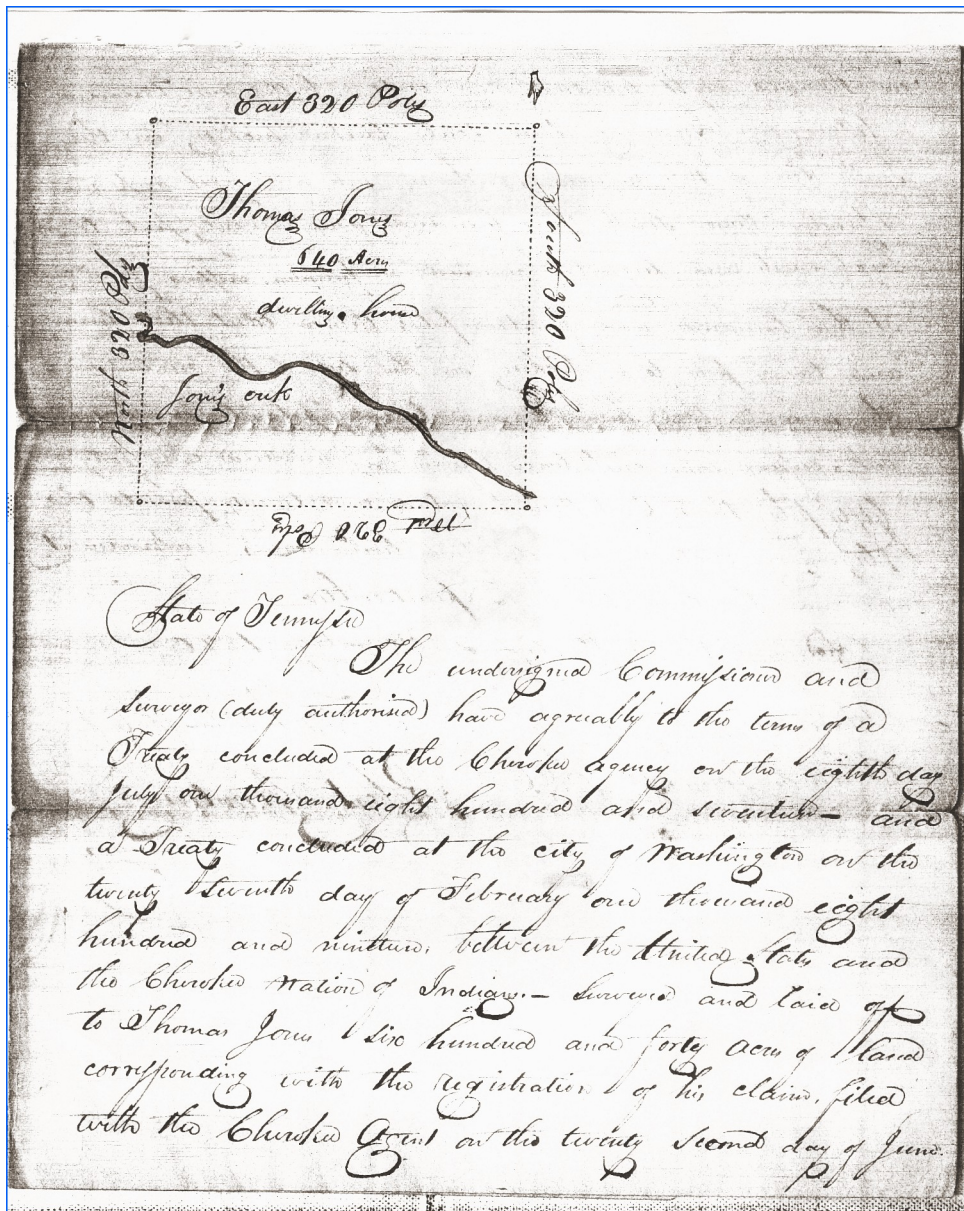 East 320 Poles
Thomas Jones
640 Acres
dwelling house
South 320 Poles
North 320 Poles
Jones creek
West 320 Poles
State of Tennessee
The undersigned Commissioner and
Surveyor (duly authorised) have agreably to the terms of a
Treaty concluded at the Cherokee agency on the eighth day
July one thousand eight hundred and seventeen — and
a Treaty concluded at the city of Washington on the
twenty seventh day of February one thousand eight
hundred and nineteen, between the United States and
the Cherokee nation of Indians. — Surveyed and laid off
to Thomas Jones six hundred and forty acres of land
corresponding with the registration of his claim, filed
with the Cherokee Agent on the twenty second day of June